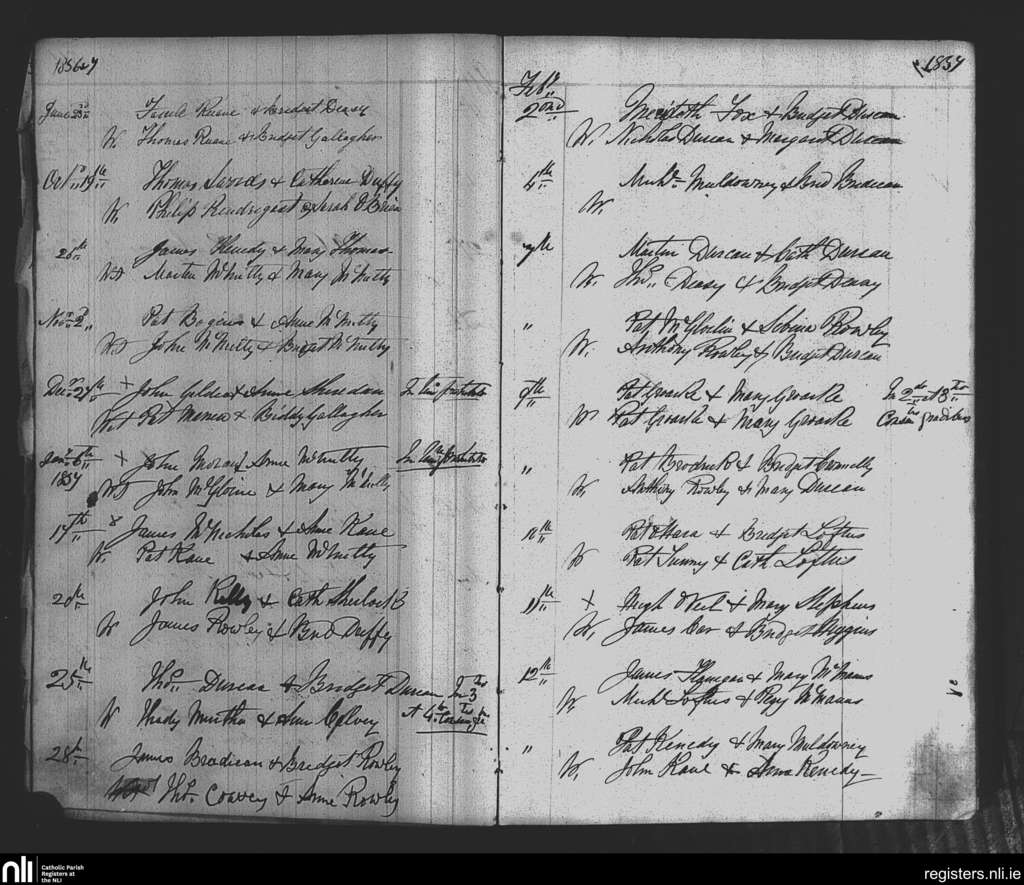 1856 & 7
June 23rd Ruane & Bridget Deasy
W. Thomas Ruane & Bridget Gallagher
Oct. 19th Thomas & Catherine Duffy
W. Philip Prendrigast & Sarah O'Brien
26th James Kenedy & Mary Thomas
Wt Martin McNulty & Mary McNulty
Novr 2nd Pat & Anne McNulty
Wt John McNulty & Bridget McNulty
Decr 27th + John Gildea & Anne Sheridan
Wt Pat & Biddy Gallagher
Jany 6th + John Moran & Anne McNulty
1857 Wt John McGloine & Mary McNulty
17th James McNicholas & Anne Kane
W. Pat Kane & Anne McNulty
20th John Kelly & Cath Sherlock
W James Rowley & Brid Duffy
25th Thos. Durcan & Bridget Durcan In 3to
W Thady Murtha & Anne at 4to Consang
28th James Bradican & Bridget Rowley
Thos. Coavey & Anne Rowley
1857
Feby
2ond Meredith Fox & Bridget Durcan
W. Nicholas Durcan & Margaret Durcan
4th Muldowney & Brid
W.
7th Martin Durcan & Cath Durcan
W. Thos. Deasy & Bridget Deasy
" Pat McGloin & Sebina Rowley
W. Anthony Rowley & Bridget Durcan
9th Pat Groarke & Mary Groarke In 2do at 3tio
W Pat Groarke & Mary Groarke Consan gradibus
" Pat Brodrick & Bridget Connelly
W. Anthony Rowley & Mary Durcan
Pat O'Hara & Bridget Loftus
W Pat Tunny & Cath Loftus
11th + Hugh O'Neil & Mary Stephens
W. James Car & Bridget Higgins
12th James Flanegan & Mary McManus
W. Michl Loftus & Peggy McManus
" Pat Kenedy & Mary Muldowney
W. John Kane & Anne Kenedy
nli
Catholic Parish
Registers at
the NLI
registers.nli.ie